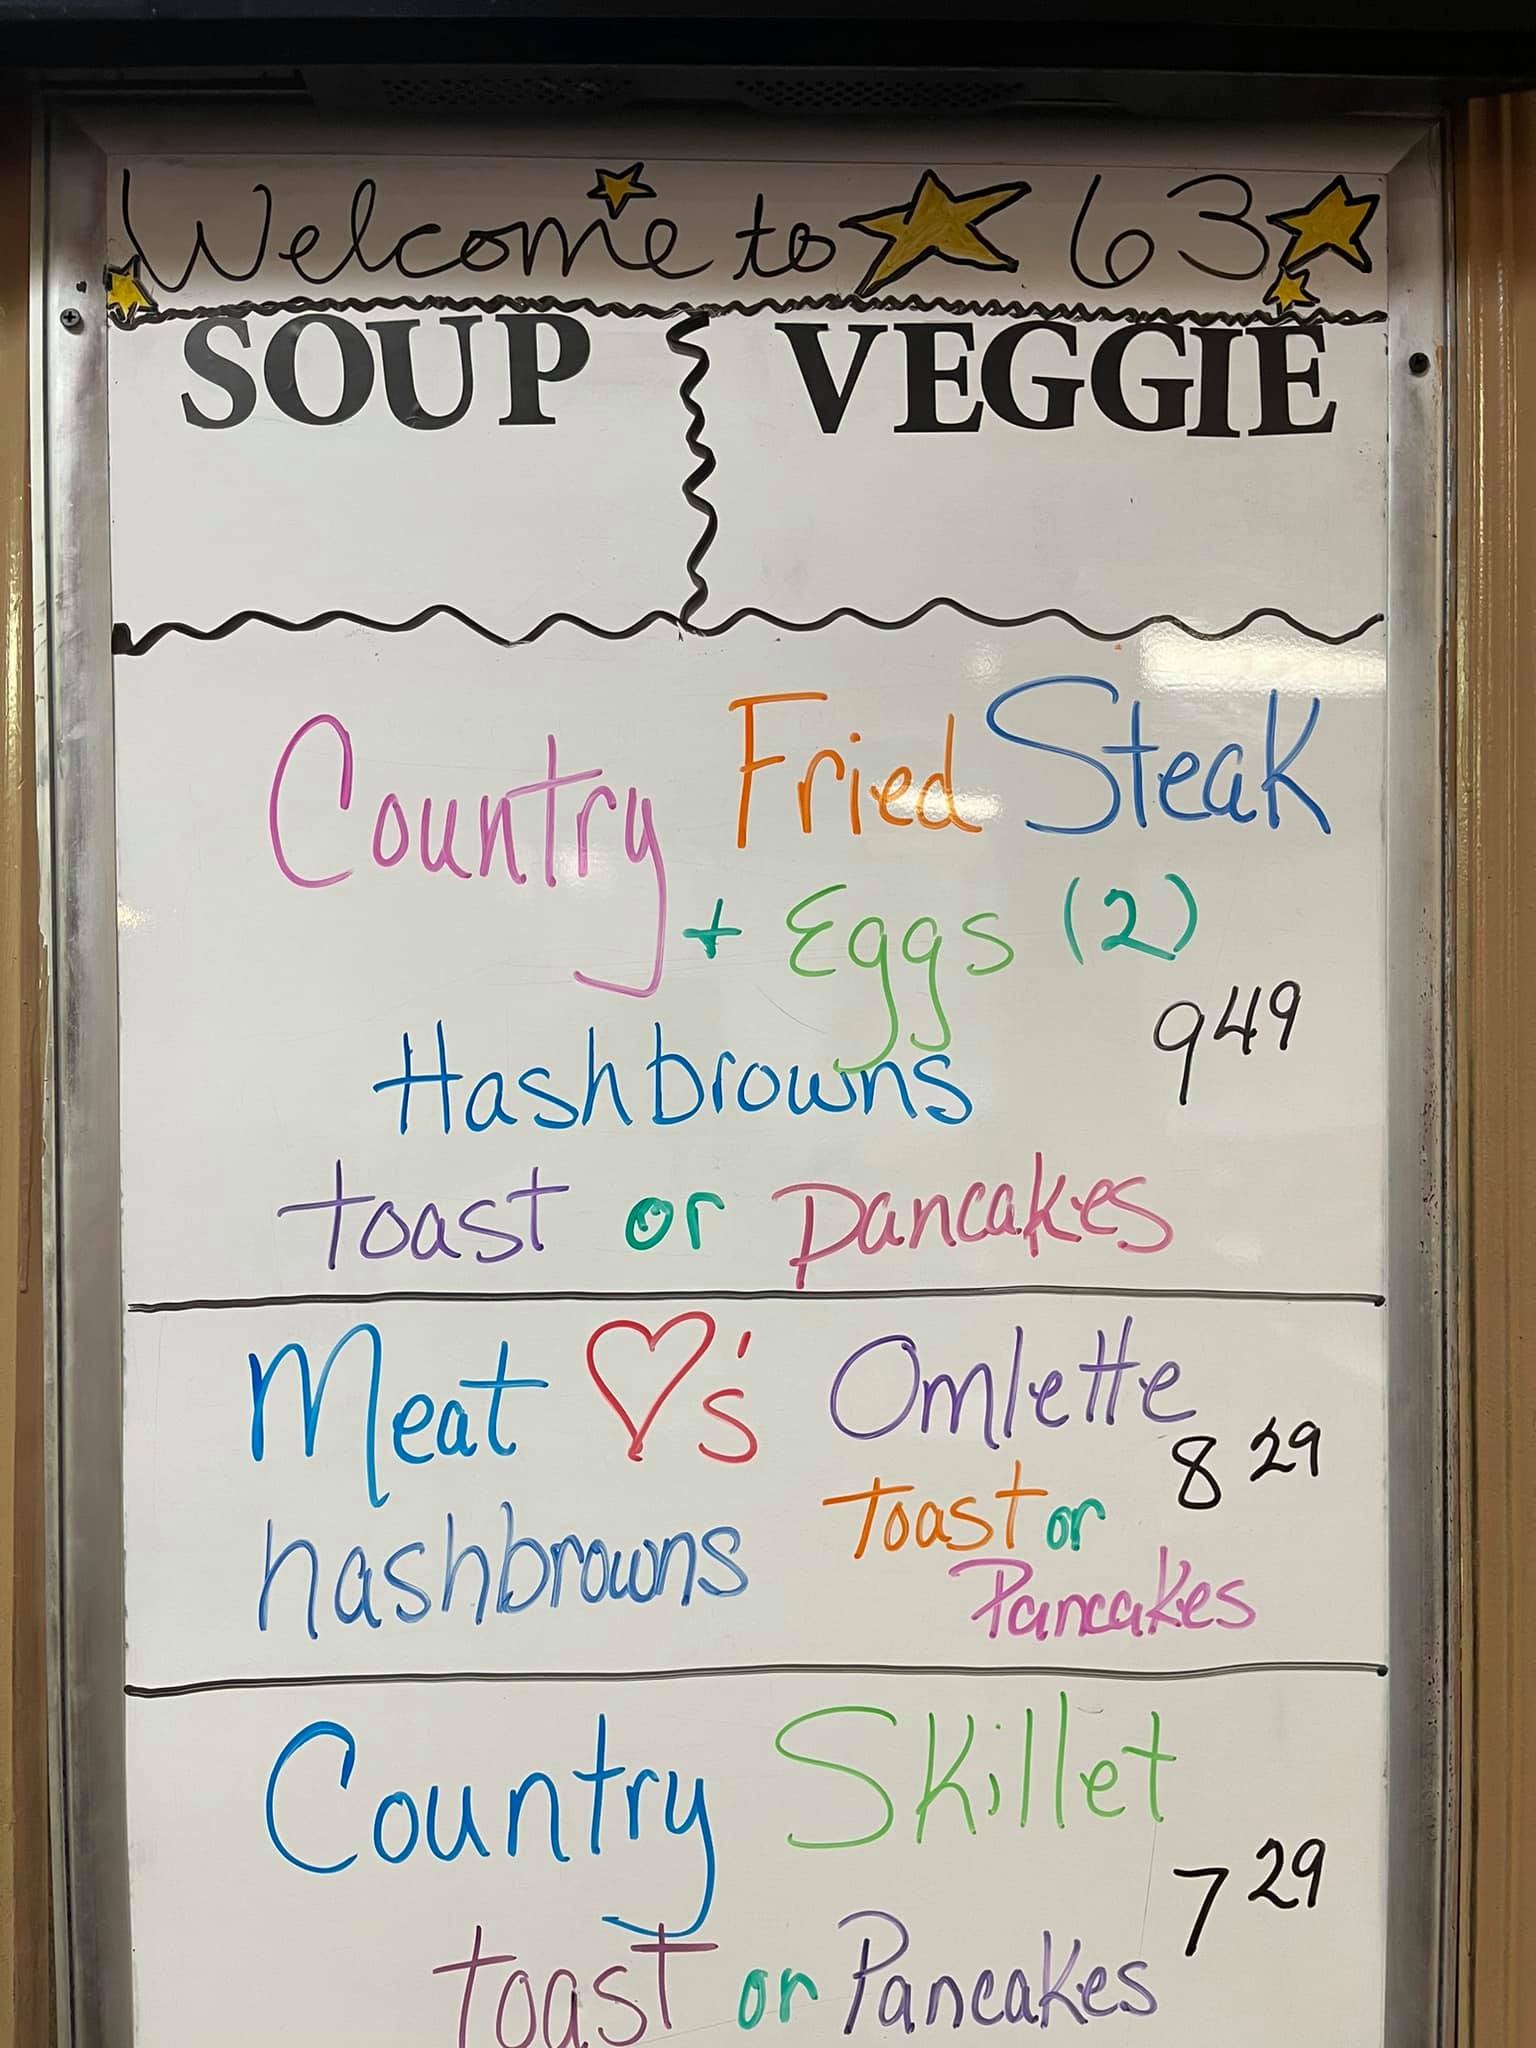 Welcome to 63
SOUP VEGGIE
Country Fried Steak
+ Eggs (2)
9 49
Hashbrowns
toast or pancakes
Meat ♡'s Omlette
8 29
hashbrowns Toast or
Pancakes
Country Skillet
7 29
toast or Pancakes